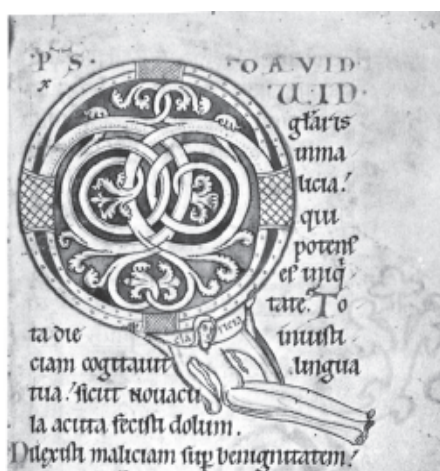 PS. DAVID
UID
gl̄aris
inma
licia.'
qui
potens
es iniq̇
tate. To
ta die iniusti
ciam cogitauit lingua
tua.' sicut nouacu
la acuta fecisti dolum.
Dilexisti maliciam sup̄ benignitatem.'